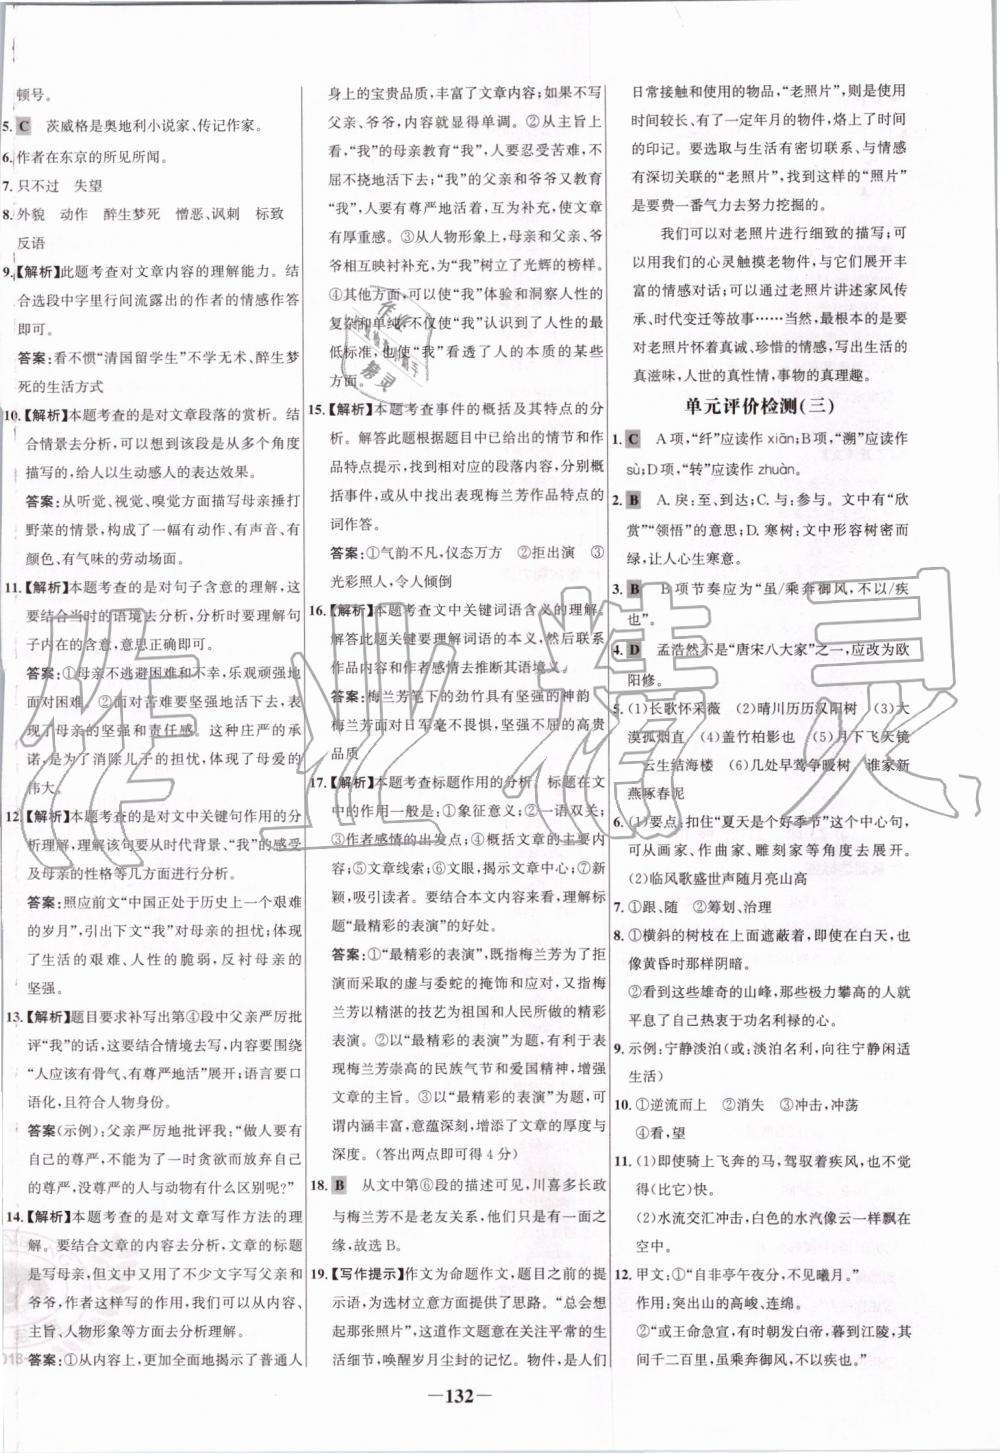 顿号。
5. C 茨威格是奥地利小说家、传记作家。
6. 作者在东京的所见所闻。
7. 只不过 失望
8. 外貌 动作 醉生梦死 憎恶、讽刺 标致
反语
9.【解析】此题考查对文章内容的理解能力。结
合选段中字里行间流露出的作者的情感作答
即可。
答案:看不惯“清国留学生”不学无术、醉生梦
死的生活方式
10.【解析】本题考查的是对文章段落的赏析。结
合情景去分析,可以找到该段是从多个角度
描写的,给人以生动感人的表达效果。
答案:从听觉、视觉、嗅觉方面描写母亲捶打
野菜的情景,构成了一幅有动作、有声音、有
颜色、有气味的劳动场面。
11.【解析】本题考查的是对句子含意的理解,这
要结合当时的语境去分析,分析时要理解句
子内在的含意,意思正确即可。
答案:①母亲不逃避困难和不幸,乐观顽强地
面对困难。②面对苦难要坚强地活下去,表
现了母亲的坚强和责任感。这种庄严的承
诺,是为了消除儿子的担忧,体现了母爱的
伟大。
12.【解析】本题考查的是对文中关键句作用的分
析理解,理解该句要从时代背景、“我”的感受
及母亲的性格等几方面进行分析。
答案:照应前文“中国正处于历史上一个艰难
的岁月”,引出下文“我”对母亲的担忧;体现
了生活的艰难、人性的脆弱,反衬母亲的
坚强。
13.【解析】题目要求补写出第④段中父亲严厉批
评“我”的话,这要结合情境去写,内容要围绕
“人应该有骨气、有尊严地活”展开;语言要口
语化,且符合人物身份。
答案(示例):父亲严厉地批评我:“做人要有
自己的尊严,不能为了一时贪欲而放弃自己
的尊严,没尊严的人与动物有什么区别呢?”
14.【解析】本题考查的是对文章写作方法的理
解。要结合文章的内容去分析,文章的标题
是写母亲,但文中又用了不少文字写父亲和
爷爷,作者这样写的作用,我们可以从内容、
主旨、人物形象等方面去分析理解。
答案:①从内容上,更加全面地揭示了普通人
身上的宝贵品质,丰富了文章内容;如果不写
父亲、爷爷,内容就显得单调。②从主旨上,
如果说“我”的母亲教育“我”,要忍受苦难,不
屈不挠地活下去;“我”的父亲和爷爷又教育
“我”,人要有尊严地活着,互为补充,使文章
有厚重感。③从人物形象上,母亲和父亲、爷
爷相互映衬补充,为“我”树立了光辉的榜样。
④其他方面,可以使“我”体验和洞察人性的
复杂和单纯,不仅使“我”认识到了人性的最
低标准,也使“我”看透了人的本质的某些
方面。
15.【解析】本题考查事件的概括及其特点的分
析。解答此题根据题目中已给出的情节和作
品特点提示,找到相应的段落内容,分别概
括事件,或从中找出表现梅兰芳作品特点的
词作答。
答案:①气韵不凡,仪态万方 ②拒出演 ③
光彩照人,令人倾倒
16.【解析】本题考查文中关键词语含义的理解。
解答此题关键要理解词语的本义,然后联系
作品内容和作者感情去推断其语境义。
答案:梅兰芳笔下的劲竹具有坚强的神韵
梅兰芳面对日军毫不畏惧,坚强不屈的高贵
品质
17.【解析】本题考查标题作用的分析。标题在文
中的作用一般是:①象征意义;②一语双关;
③作者感情的出发点;④概括文章的主要内
容;⑤文章线索;⑥文眼,揭示文章中心;⑦新
颖,吸引读者。要结合本文内容来看,理解标
题“最精彩的表演”的好处。
答案:①“最精彩的表演”,既指梅兰芳为了拒
演而采取的虚与委蛇的掩饰和应对,又指梅
兰芳以精湛的技艺为祖国和人民所做的精彩
演出。②以“最精彩的表演”为题,可以体现
梅兰芳崇高的民族气节和爱国精神,增强
文章的主旨。③以“最精彩的表演”为题,可
谓内涵丰富,意蕴深刻,增添了文章的厚度与
深度。(答出两点即可得 4 分)
18. B 从文中第⑥段的描述可见,川喜多长政
与梅兰芳不是老友关系,他们只是有一面之
缘,故选 B。
19.【写作提示】作文为命题作文,题目之前的提
示语,为选材立意方面提供了思路。“总会想
起那张照片”,这道作文题意在关注平常的生
活细节,唤醒岁月尘封的记忆。物件,是人们
日常接触和使用的物品,“老照片”,则是使用
时间较长、有了一定年月的物件,烙上了时间
的印记。要选取与生活有密切联系、与情感
有深切关联的“老照片”,找到这样的“照片”
是要费一番气力去努力挖掘的。
我们可以对老照片进行细致的描写;可
以用我们的心灵触摸老物件,与它们展开丰
富的情感对话;可以通过老照片讲述家风传
承、时代变迁等故事……当然,最根本的是要
对老照片怀着真诚、珍惜的情感,写出生活的
真滋味,人世的真性情,事物的真理趣。
单元评价检测(三)
1. C A 项,“纤”应读作 xiān;B 项,“溯”应读作
sù;D 项,“转”应读作 zhuàn。
2. B A. 戾:至、到达;C. 与:参与。文中有“欣
赏”“领悟”的意思;D. 寒树:文中形容树密而
绿,让人心生寒意。
3. B B 项节奏应为“虽/乘奔御风,不以/疾
也”。
4. D 孟浩然不是“唐宋八大家”之一,应改为欧
阳修。
5. (1)长歌怀采薇 (2)晴川历历汉阳树 (3)大
漠孤烟直 (4)盖竹柏影也 (5)月下飞天镜
云生结海楼 (6)几处早莺争暖树 谁家新
燕啄春泥
6. (1)要点:扣住“夏天是个好季节”这个中心句,
可从画家、作曲家、雕刻家等角度展开。
(2)临风歌盛世声随月亮山高
7. ①跟、随 ②筹划、治理
8. ①横斜的树枝在上面遮蔽着,即使在白天,也
像黄昏时那样阴暗。
②看到这些雄奇的山峰,那些极力攀高的人就
平息了自己热衷于功名利禄的心。
9. 示例:宁静淡泊(或:淡泊名利,向往宁静闲适
生活)
10. ①逆流而上 ②消失 ③冲击,冲荡
④看,望
11. (1)即使骑上飞奔的马,驾驭着疾风,也不觉
得(比它)快。
(2)水流交汇冲击,白色的水汽像云一样飘在
空中。
12. 甲文:①“自非亭午夜分,不见曦月。”
作用:突出山的高峻、连绵。
②“或王命急宣,有时朝发白帝,暮到江陵,其
间千二百里,虽乘奔御风,不以疾也。”
—132—
作业精灵
作业
精灵